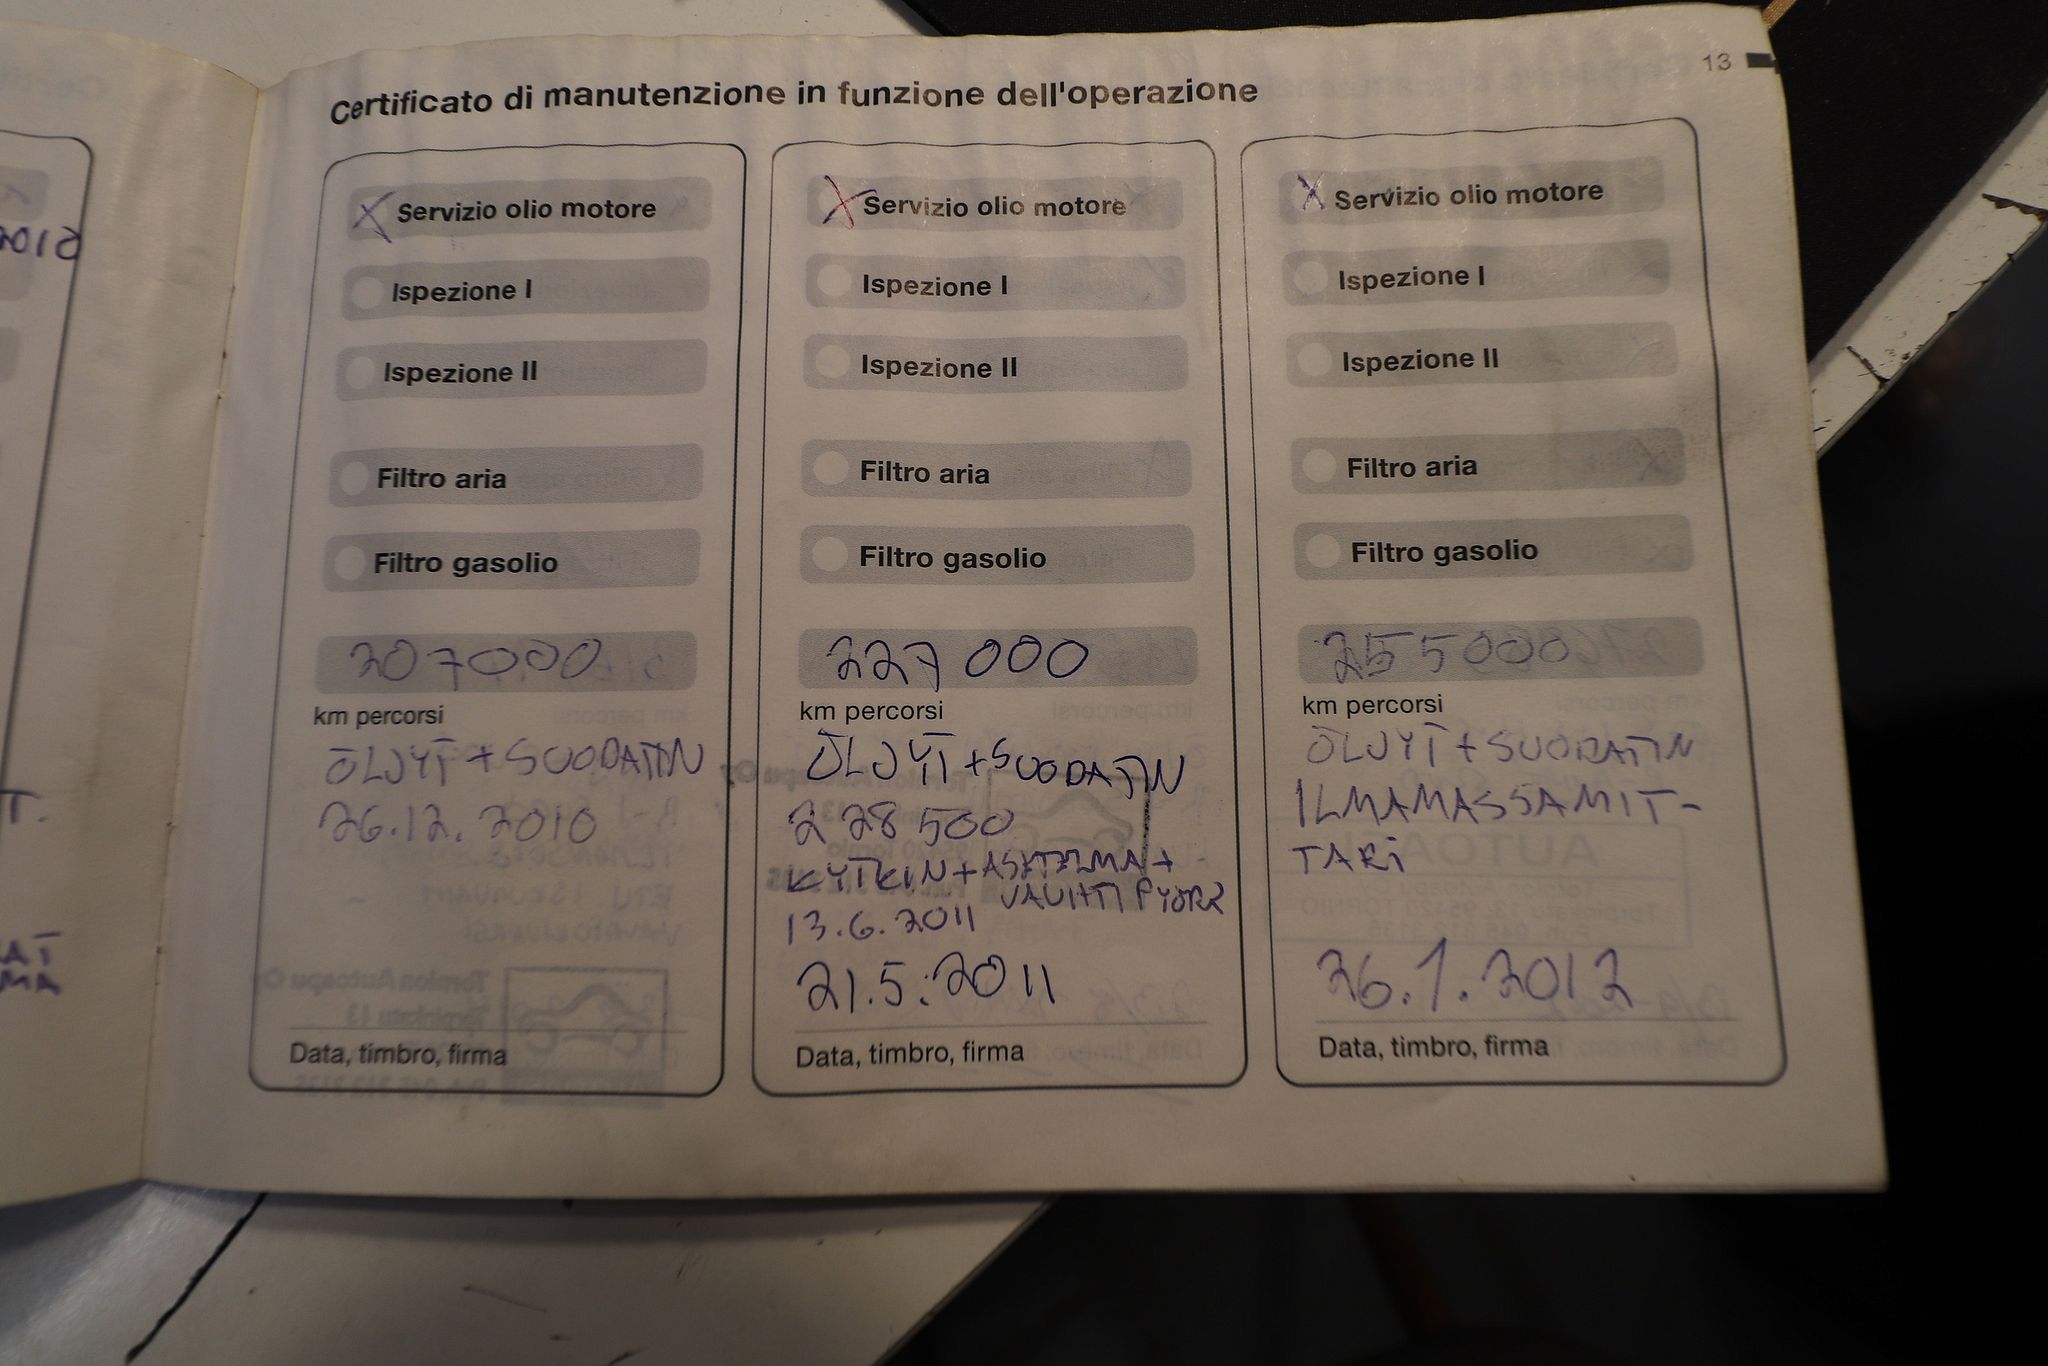 13
Certificato di manutenzione in funzione dell'operazione
X Servizio olio motore
Ispezione I
Ispezione II
Filtro aria
Filtro gasolio
207000
km percorsi
ÖLJYT + SUODATIN
26.12.2010
Data, timbro, firma
X Servizio olio motore
Ispezione I
Ispezione II
Filtro aria
Filtro gasolio
227 000
km percorsi
ÖLJYT + SUODATIN
228 500
KYTKIN + ASETELMA +
VAUHTIPYÖRÄ
13.6.2011
21.5.2011
Data, timbro, firma
X Servizio olio motore
Ispezione I
Ispezione II
Filtro aria
Filtro gasolio
255000
km percorsi
ÖLJYT + SUODATIN
ILMAMASSAMIT-
TARI
26.1.2012
Data, timbro, firma